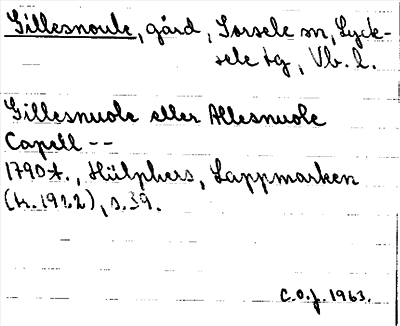 Gillesnoule, gård, Sorsele sn, Lyck-
sele tg, Vb. l.
Gillesnuole eller Allesnuole
Capell --
1790 t., Hülphers, Lappmarken
(tr. 1922), s. 39.
C.O.J. 1963.